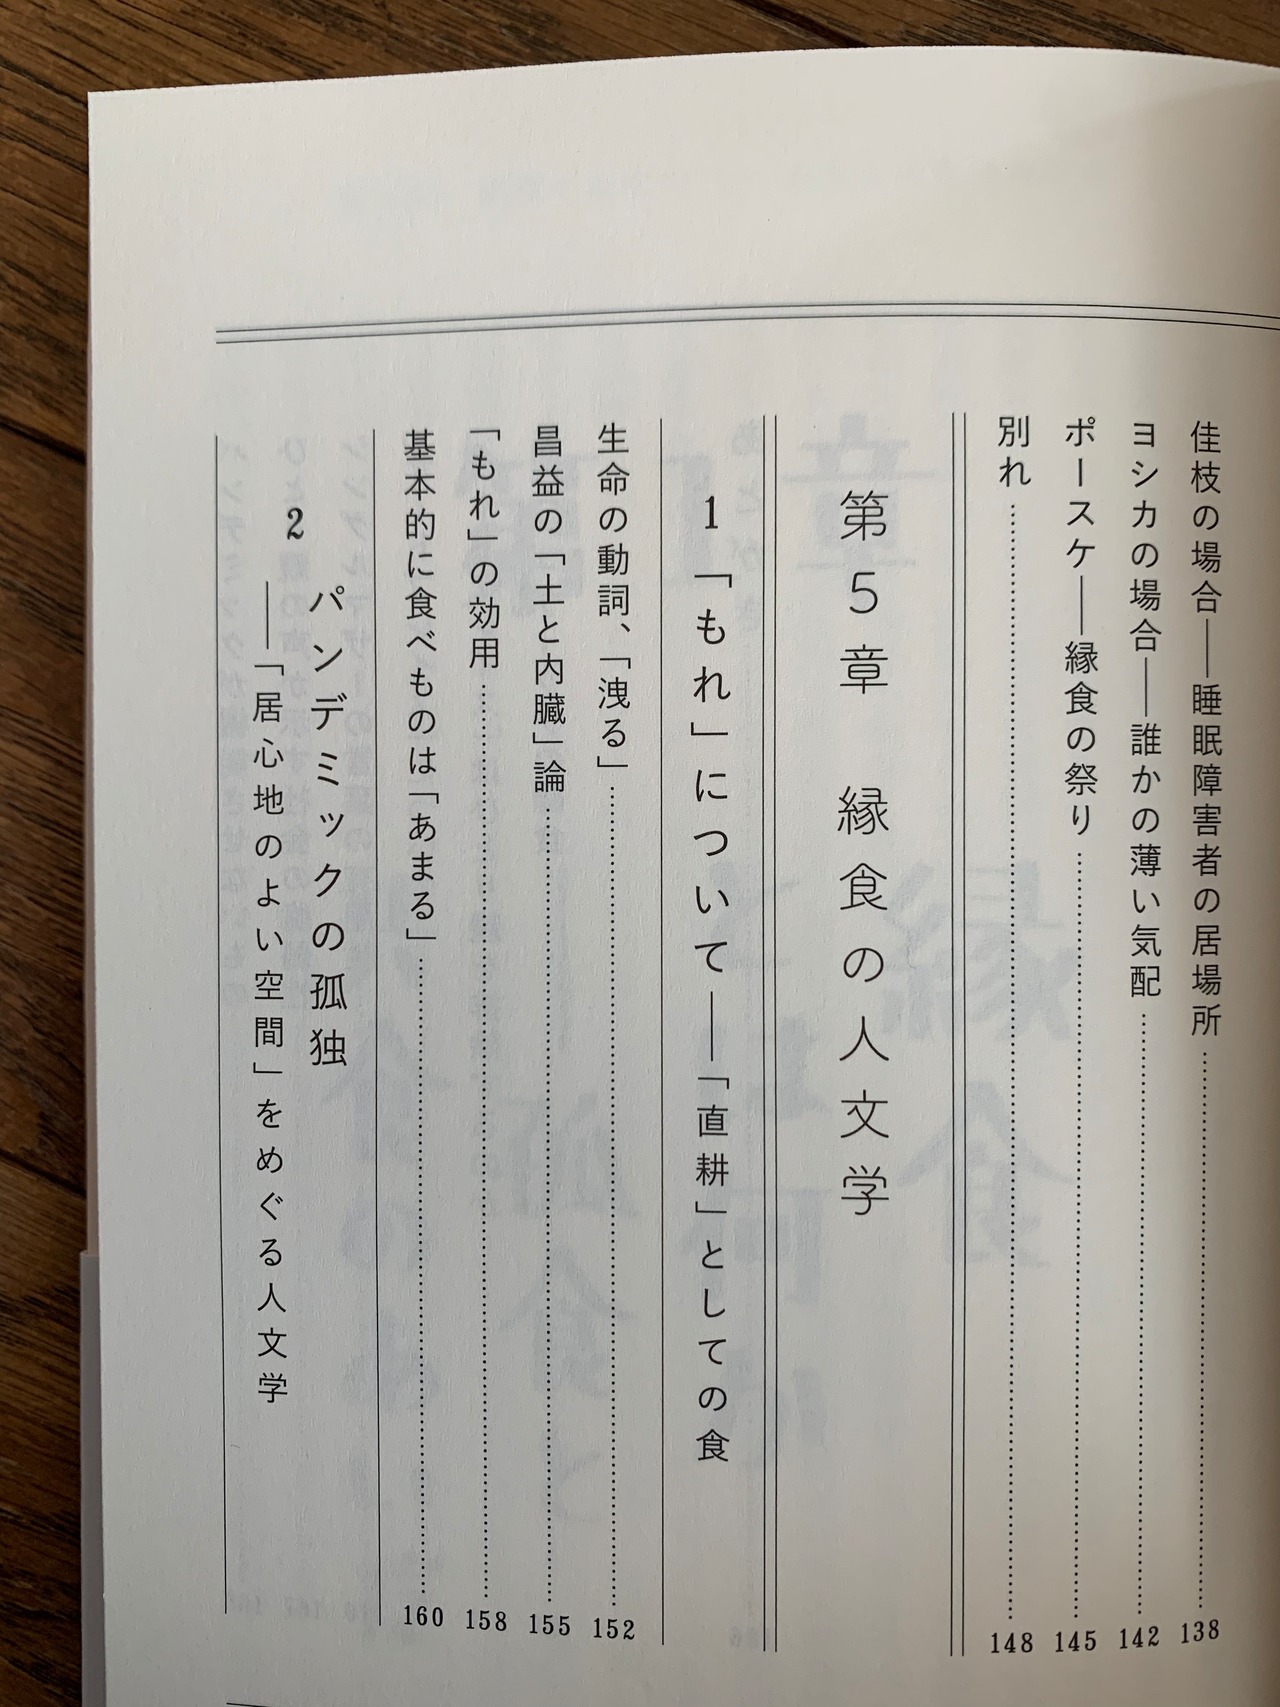 佳枝の場合――睡眠障害者の居場所……138
ヨシカの場合――誰かの薄い気配……142
ポースケ――縁食の祭り……145
別れ……148
第5章　縁食の人文学
1　「もれ」について――「直耕」としての食
生命の動詞、「洩る」……152
昌益の「土と内臓」論……155
「もれ」の効用……158
基本的に食べものは「あまる」……160
2　パンデミックの孤独
――「居心地のよい空間」をめぐる人文学